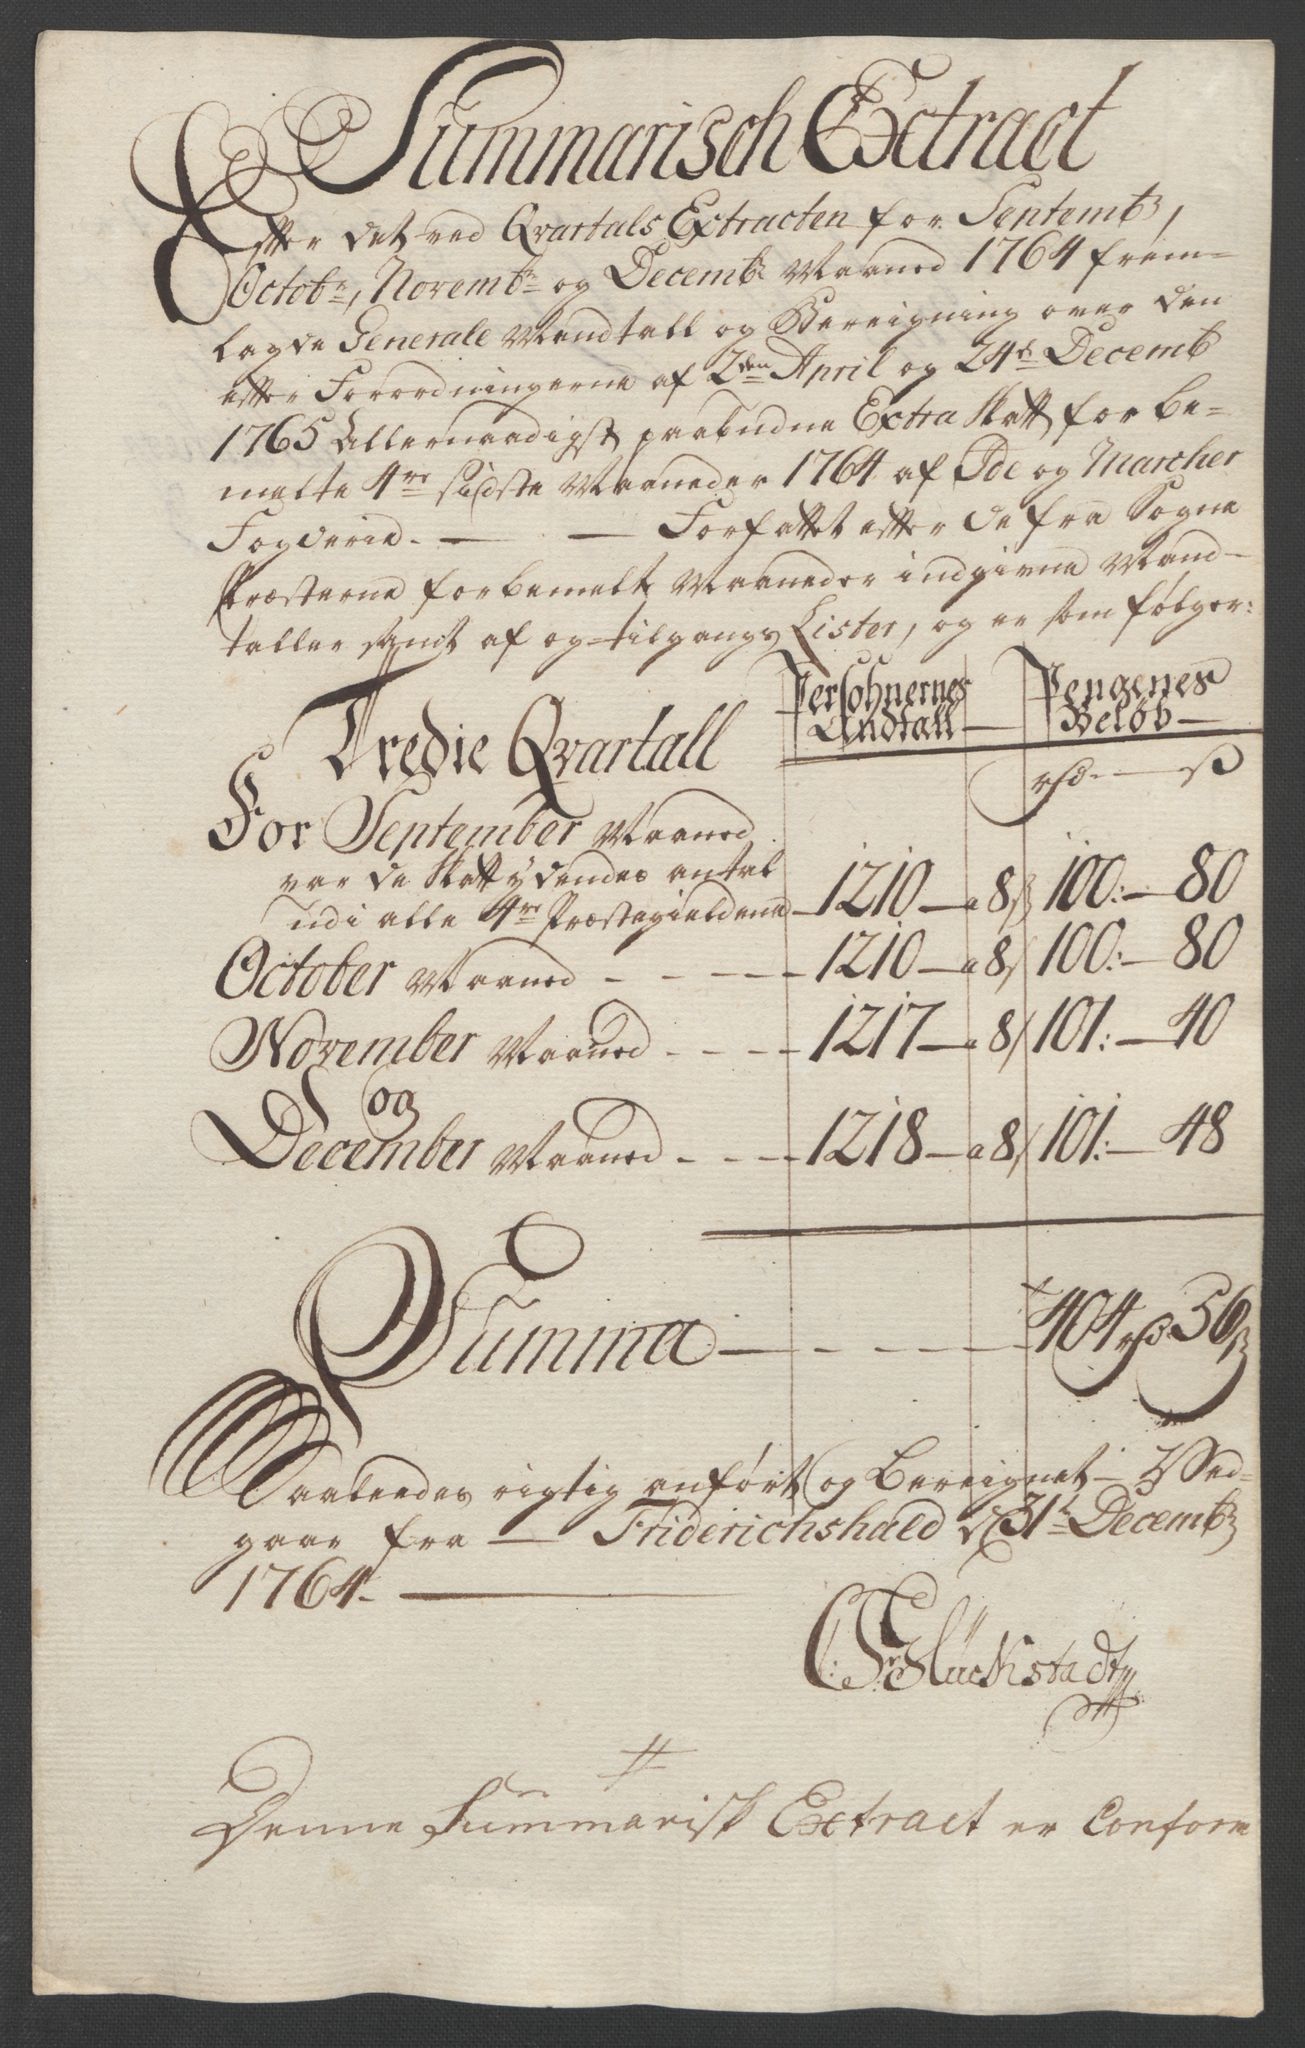 Summarisch Extract
Efter det ved Qvartals Extracten for Septembr,
Octobr, Novembr og Decembr Maaned 1764 frem-
lagde Generale Mandtall og Bereigning over den
efter Forordningerne af 2den April og 24de Decemb
1765 Allernaadigst paabudne Extra Skatt for be-
melte 4re sidste Maaneder 1764 af Ide og Marcher
Fogderie. — — Forfattet efter de fra Sogne
Præsterne for bemelte Maaneder indgivne Mand-
taller samt af og tilgangs Lister, og er som følger:
Persohnernes Andtall — Pengenes Beløb —
Tredie Qvartall
rd. — ß
For September Maaned
var de Skattydendes antal
udi alle 4re Præstegieldene — 1210 — a 8ß 100: — 80
October Maaned - - - - 1210 — a 8ß 100: — 80
November Maaned - - - - 1217 — a 8ß 101: — 40
og
December Maaned - - - - 1218 — a 8ß 101: — 48
Summa — - - - - 404 rd 56ß
Saaledes rigtig anført og Bereignet
gaar fra — Friderichshald d 31te Decembr
1764. —
C: Fr: Glückstadt
#
Denne Summarisk Extract er Conform